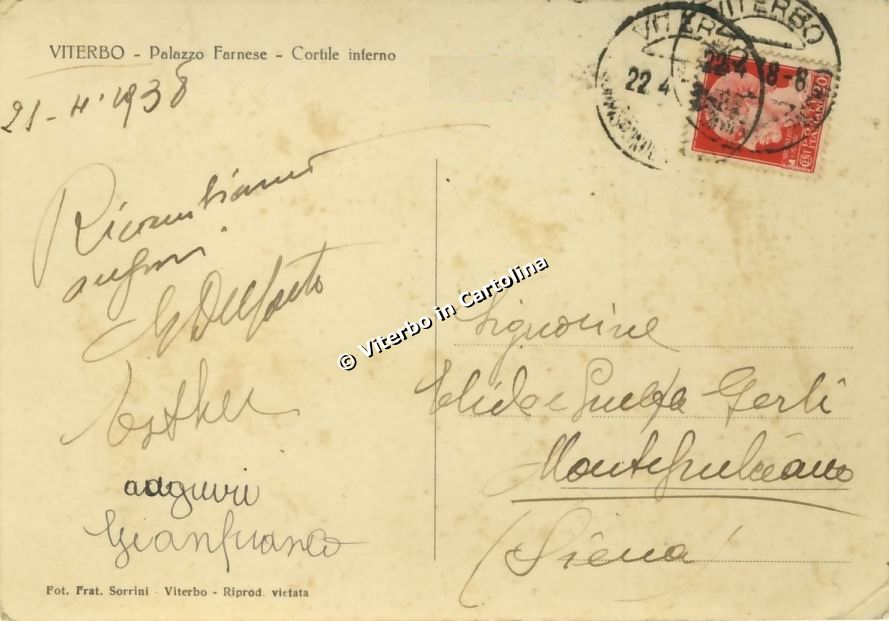 VITERBO - Palazzo Farnese - Cortile interno
21-4-1938
Ricambiamo
auguri.
Esther
adguri
Gianfranco
Fot. Frat. Sorrini - Viterbo - Riprod. vietata
© Viterbo in Cartolina
VITERBO
22.4.38-8
VITERBO
22 4
POSTE
ITALIANE
Signorine
Elida e Guelfa Gerli
Montepulciano
(Siena)